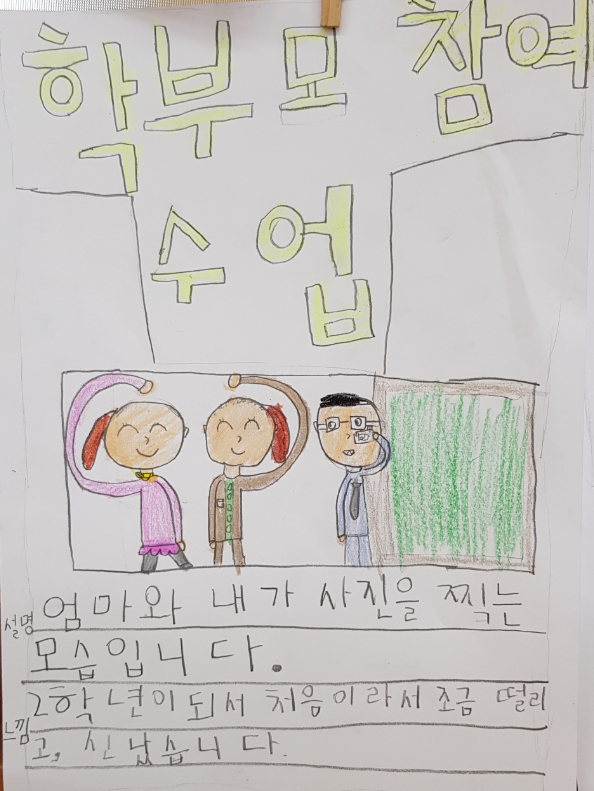 학부모 참여
수업
설명 엄마와 내가 사진을 찍는
모습입니다.
느낌 2학년이 되서 처음이라서 조금 떨리
고, 신났습니다.